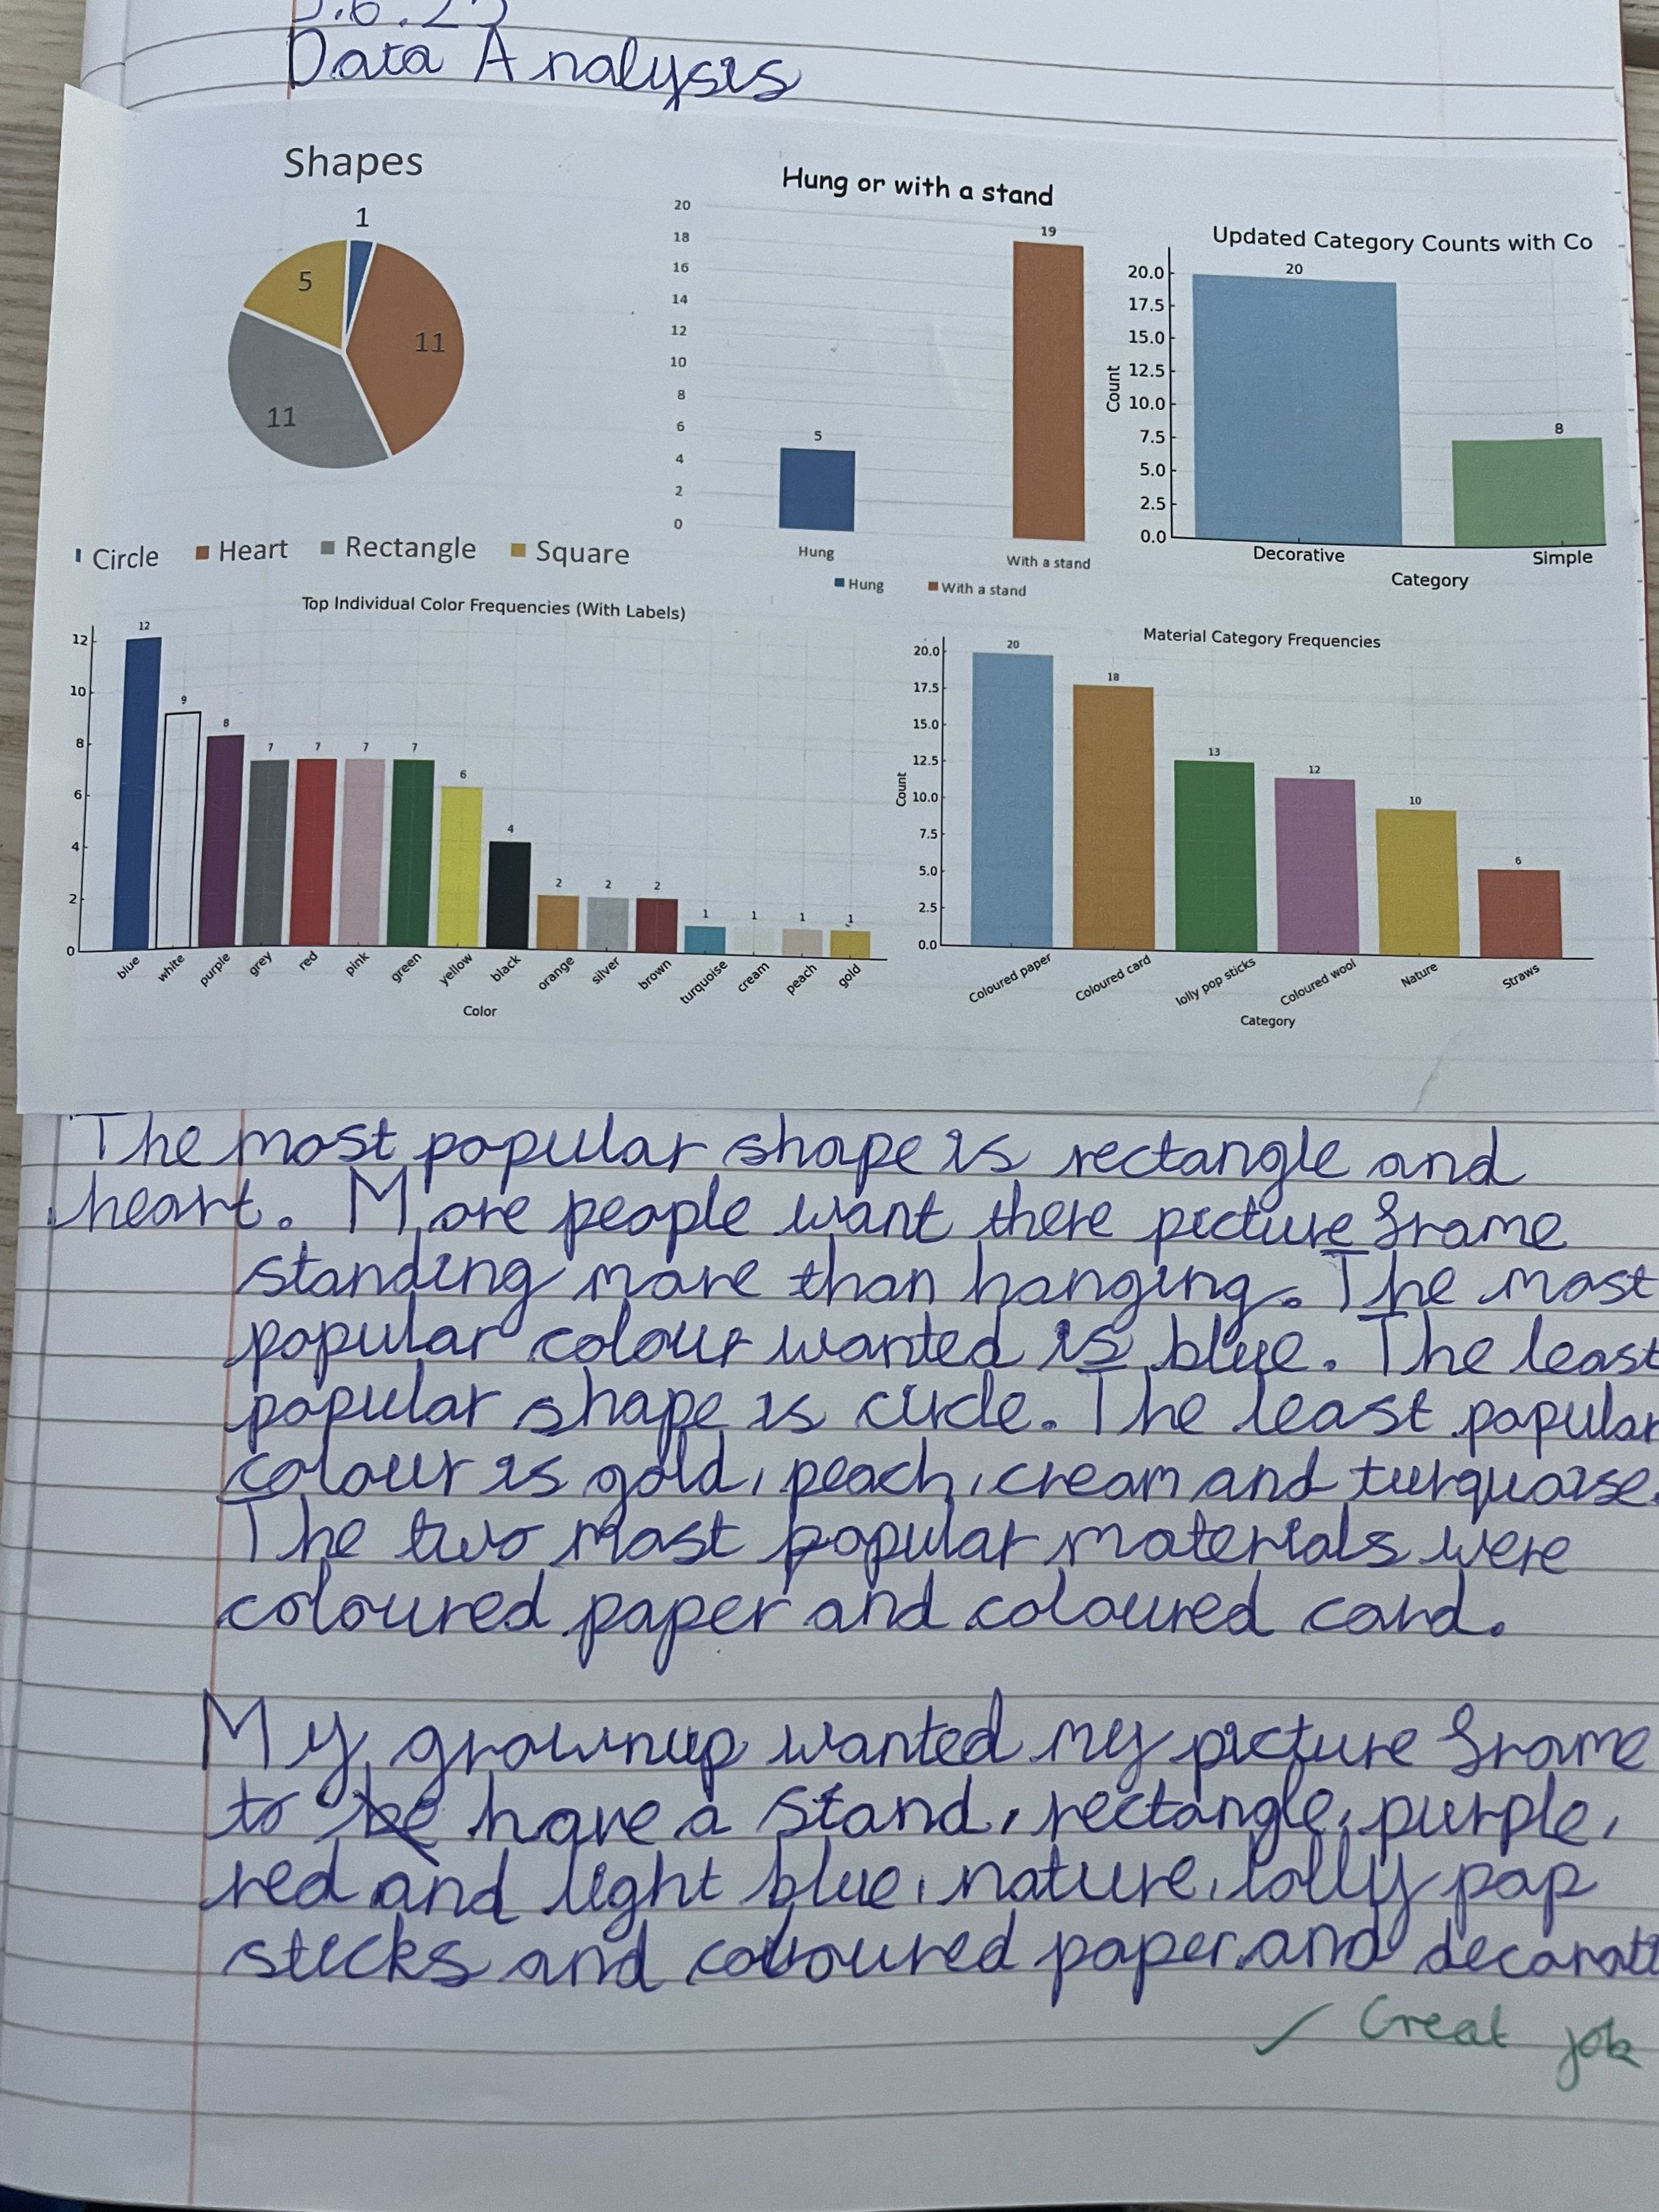 5.6.25
Data Analysis
Shapes
1
5
11
11
Circle Heart Rectangle Square
Hung or with a stand
20
18
16
14
12
10
8
6
4
2
0
5
19
Hung With a stand
Hung With a stand
Updated Category Counts with Co
20.0
17.5
15.0
12.5
10.0
7.5
5.0
2.5
0.0
Count
20
8
Decorative Simple
Category
Top Individual Color Frequencies (With Labels)
12
10
8
6
4
2
0
12 9 8 7 7 7 7 6 4 2 2 2 1 1 1 1
blue white purple grey red pink green yellow black orange silver brown turquoise cream peach gold
Color
Material Category Frequencies
20.0
17.5
15.0
12.5
10.0
7.5
5.0
2.5
0.0
Count
20 18 13 12 10 6
Coloured paper Coloured card lolly pop sticks Coloured wool Nature Straws
Category
The most popular shape is rectangle and
heart. More people want there picture frame
standing more than hanging. The most
popular colour wanted is blue. The least
popular shape is circle. The least popular
colour is gold, peach, cream and turquoise.
The two most popular materials were
coloured paper and coloured card.
My grownup wanted my picture frame
to be have a stand, rectangle, purple,
red and light blue, nature, lolly pop
sticks and coloured paper and decorati
✓ Great job